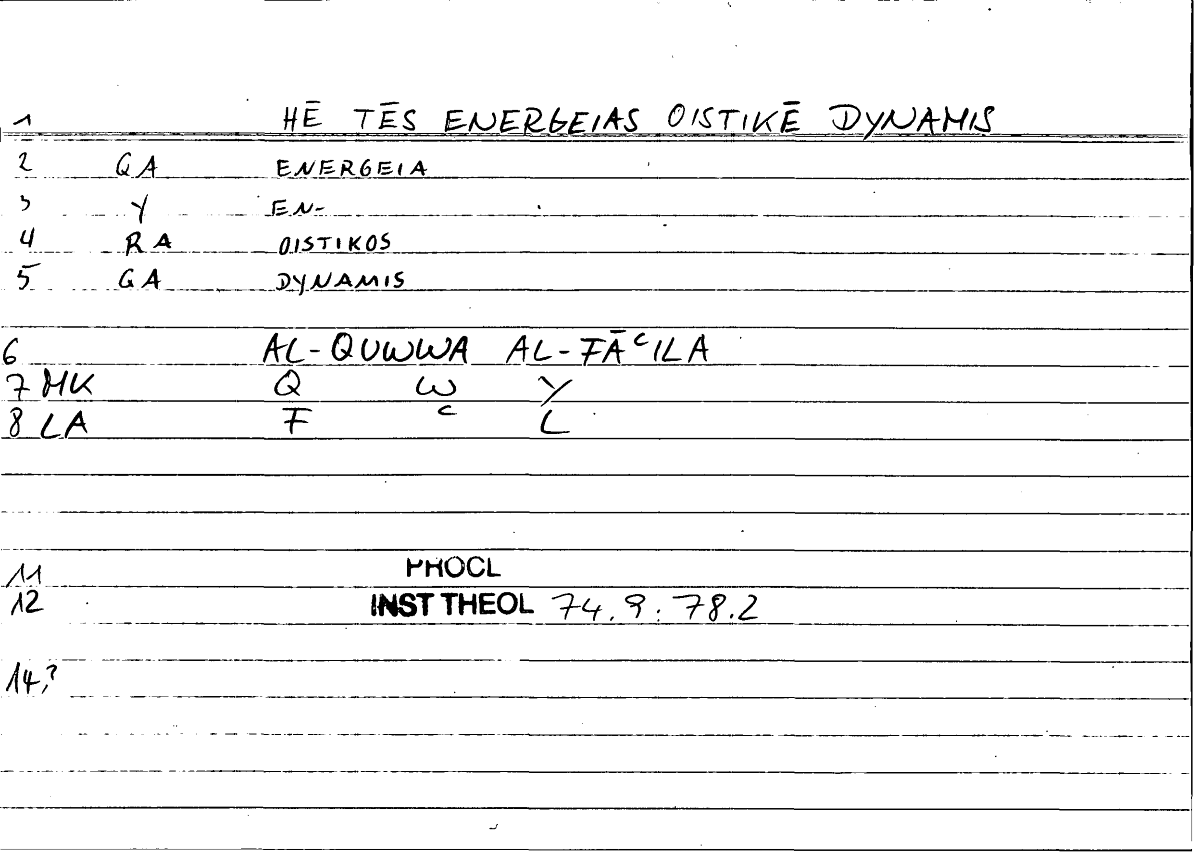 1 HĒ TĒS ENERGEIAS OISTIKĒ DYNAMIS
2 GA ENERGEIA
3 Y EN-
4 RA OISTIKOS
5 GA DYNAMIS
6 AL-QUWWA AL-FĀʿILA
7 MK Q W Y
8 LA F ʿ L
11 PROCL
12 INST THEOL 74.9: 78.2
14,?